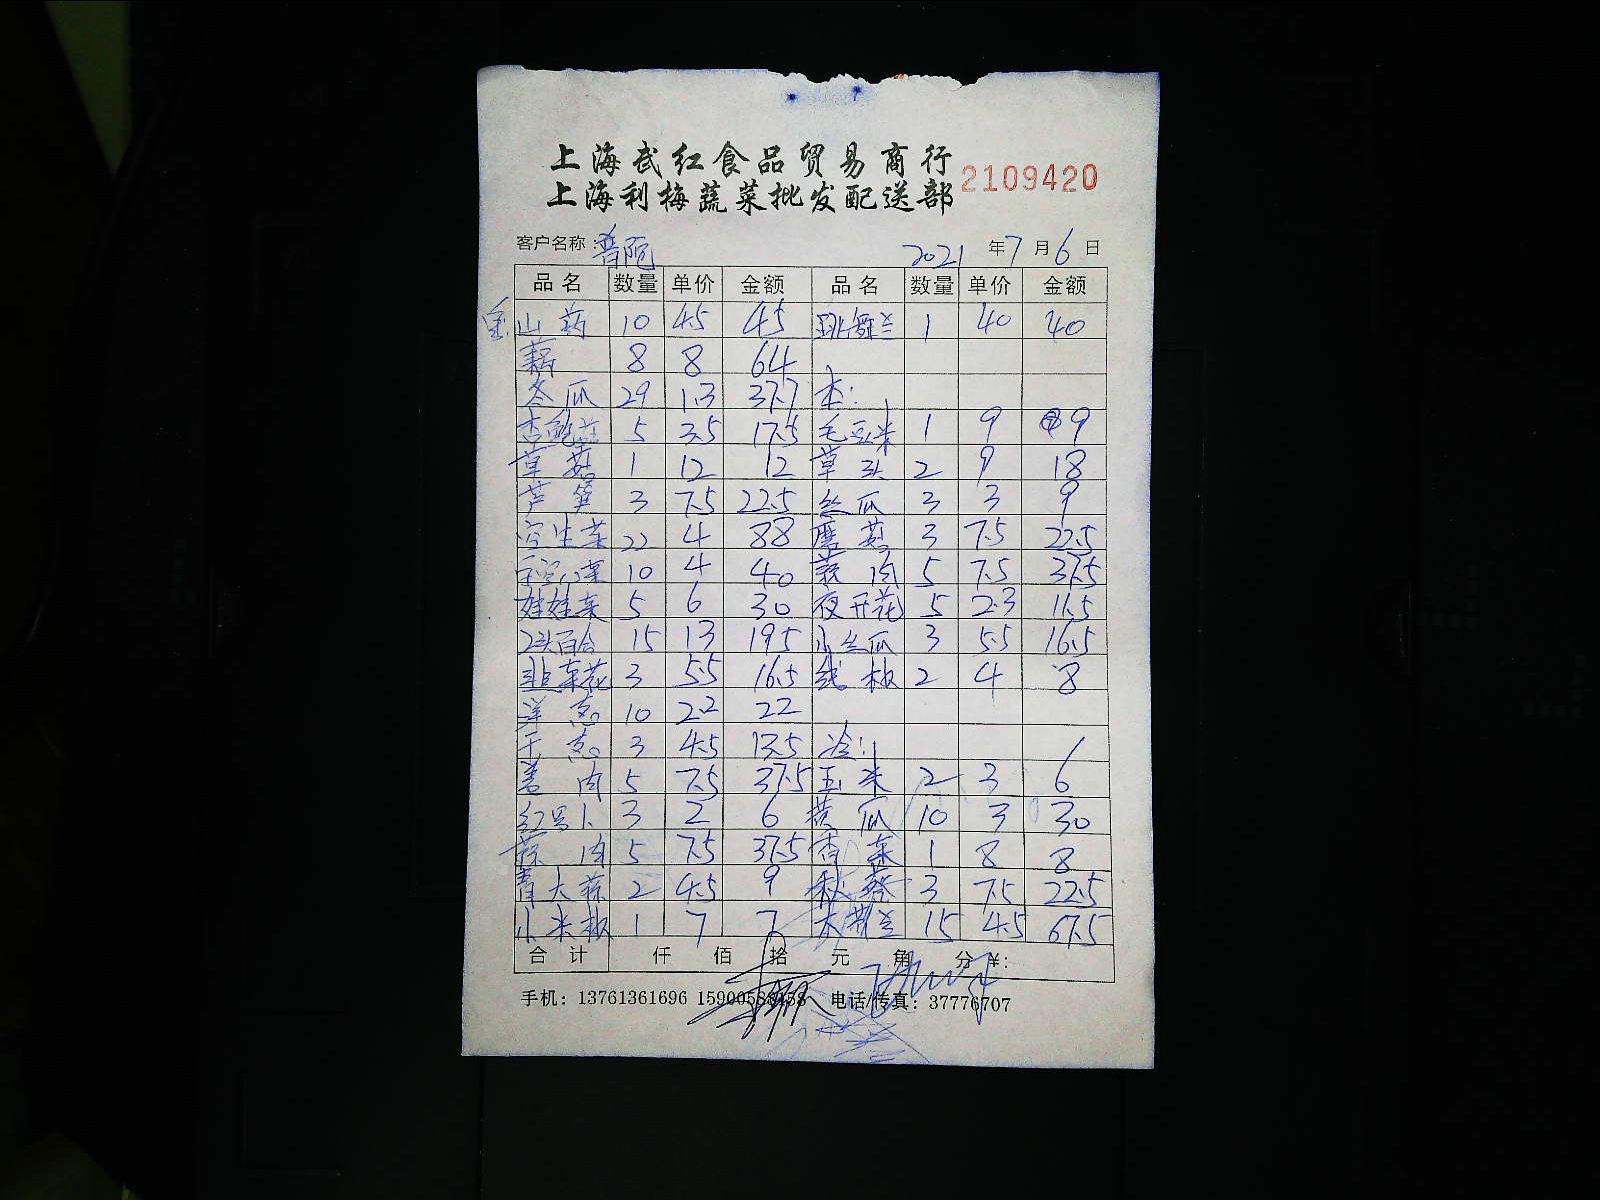 上海武红食品贸易商行
上海利梅蔬菜批发配送部 2109420
客户名称：普陀 2021 年 7 月 6 日
品名 数量 单价 金额 品名 数量 单价 金额
山药 10 4.5 45 跳舞兰 1 40 40
藕 8 8 64
冬瓜 29 1.3 37.7 本：
杏鲍菇 5 3.5 17.5 毛豆米 1 9 9
草菇 1 12 12 草头 2 9 18
芦笋 3 7.5 22.5 丝瓜 3 3 9
生菜 22 4 88 蘑菇 3 7.5 22.5
菜 10 4 40 肉 5 7.5 37.5
娃娃菜 5 6 30 夜开花 5 2.3 11.5
百合 15 13 195 小丝瓜 3 5.5 16.5
韭菜花 3 5.5 16.5 线椒 2 4 8
洋葱 10 2.2 22
干葱 3 4.5 13.5 冷：
姜肉 5 7.5 37.5 玉米 2 3 6
红罗卜 3 2 6 黄瓜 10 3 30
蒜肉 5 7.5 37.5 香菜 1 8 8
青大蒜 2 4.5 9 秋葵 3 7.5 22.5
小米椒 1 7 7 15 4.5 67.5
合计 仟 佰 拾 元 角 分 ¥:
手机：13761361696 电话/传真：37776707